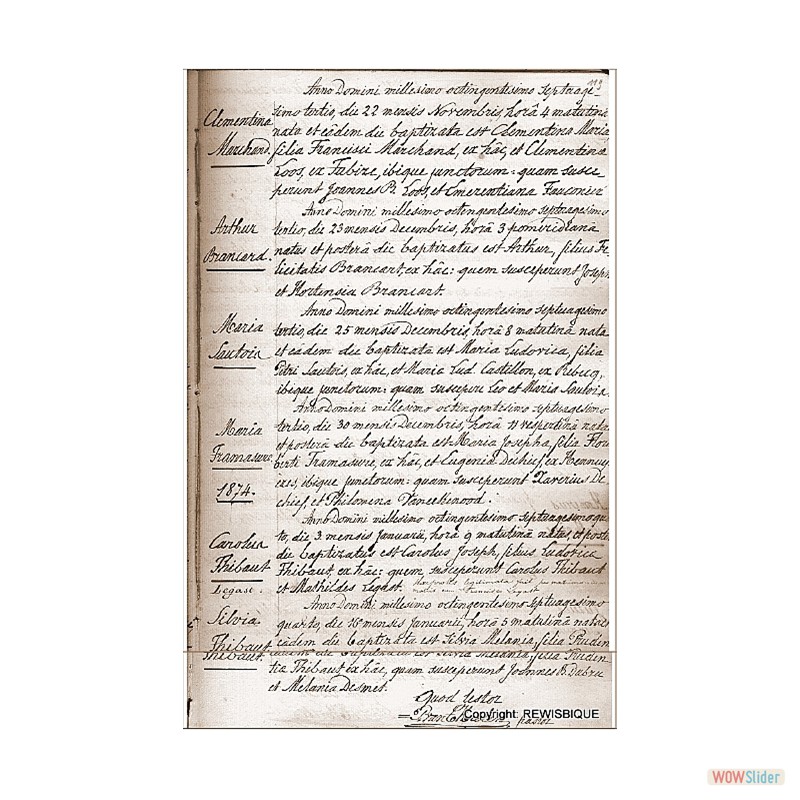 Anno Domini millesimo octingentesimo septuage
Clementina
Marchand.
simo tertio, die 22 mensis Novembris, horâ 4 matutinâ
nata et eâdem die baptizata est Clementina Maria,
filia Francisci Marchand, ex hâc, et Clementina
Loos, ex Fabize, ibique junctorum: quam susce
perunt Joannes B. Loos, et Emerentiana Fauconier
Anno Domini millesimo octingentesimo septuagesimo
Arthur
Brancard.
tertio, die 23 mensis Decembris, horâ 3 pomeridianâ
natus et posterâ die baptizatus est Arthur, filius Fe-
licitatis Brancart, ex hâc: quem susceperunt Joseph
et Hortensia Brancart.
Anno Domini millesimo octingentesimo septuagesimo
Maria
Sautois
tertio, die 25 mensis Decembris, horâ 8 matutinâ nata
et eâdem die baptizatâ est Maria Ludovica, filia
Petri Sautois, ex hâc, et Maria Lud. Castillon, ex Rebecq,
ibique junctorum: quam suscepere Leo et Maria Sautois.
Anno Domini millesimo octingentesimo septuagesimo
Maria
Framasure.
tertio, die 30 mensis Decembris, horâ 11 vespertinâ nata
et posterâ die baptizata est Maria Josepha, filia Flori
berti Framasure, ex hâc, et Eugenia Dechief, ex Hennuy-
eres, ibique junctorum: quam susceperunt Xaverius De
chief, et Philomena
1874.
Anno Domini millesimo octingentesimo septuagesimo quar
Carolus
Thibaut
Legast.
to, die 3 mensis Januarii, horâ 9 matutinâ natus, et posterâ
die baptizatus est Carolus Joseph, filius Ludovica
Thibaut, ex hâc: quem susceperunt Carolus Thibaut
et Mathildes Legast.
Anno Domini millesimo octingentesimo septuagesimo
Silvia
Thibaut
Thibaut.
quarto, die 16 mensis Januarii, horâ 5 matutinâ nata
eâdem die baptizata est Silvia Melania, filia Pruden
tiæ Thibaut, ex hâc, quam susceperunt Joannes B. Dubru
et Melania Desmet.
Quod testor
pastor
Copyright: REWISBIQUE
WOWSlider